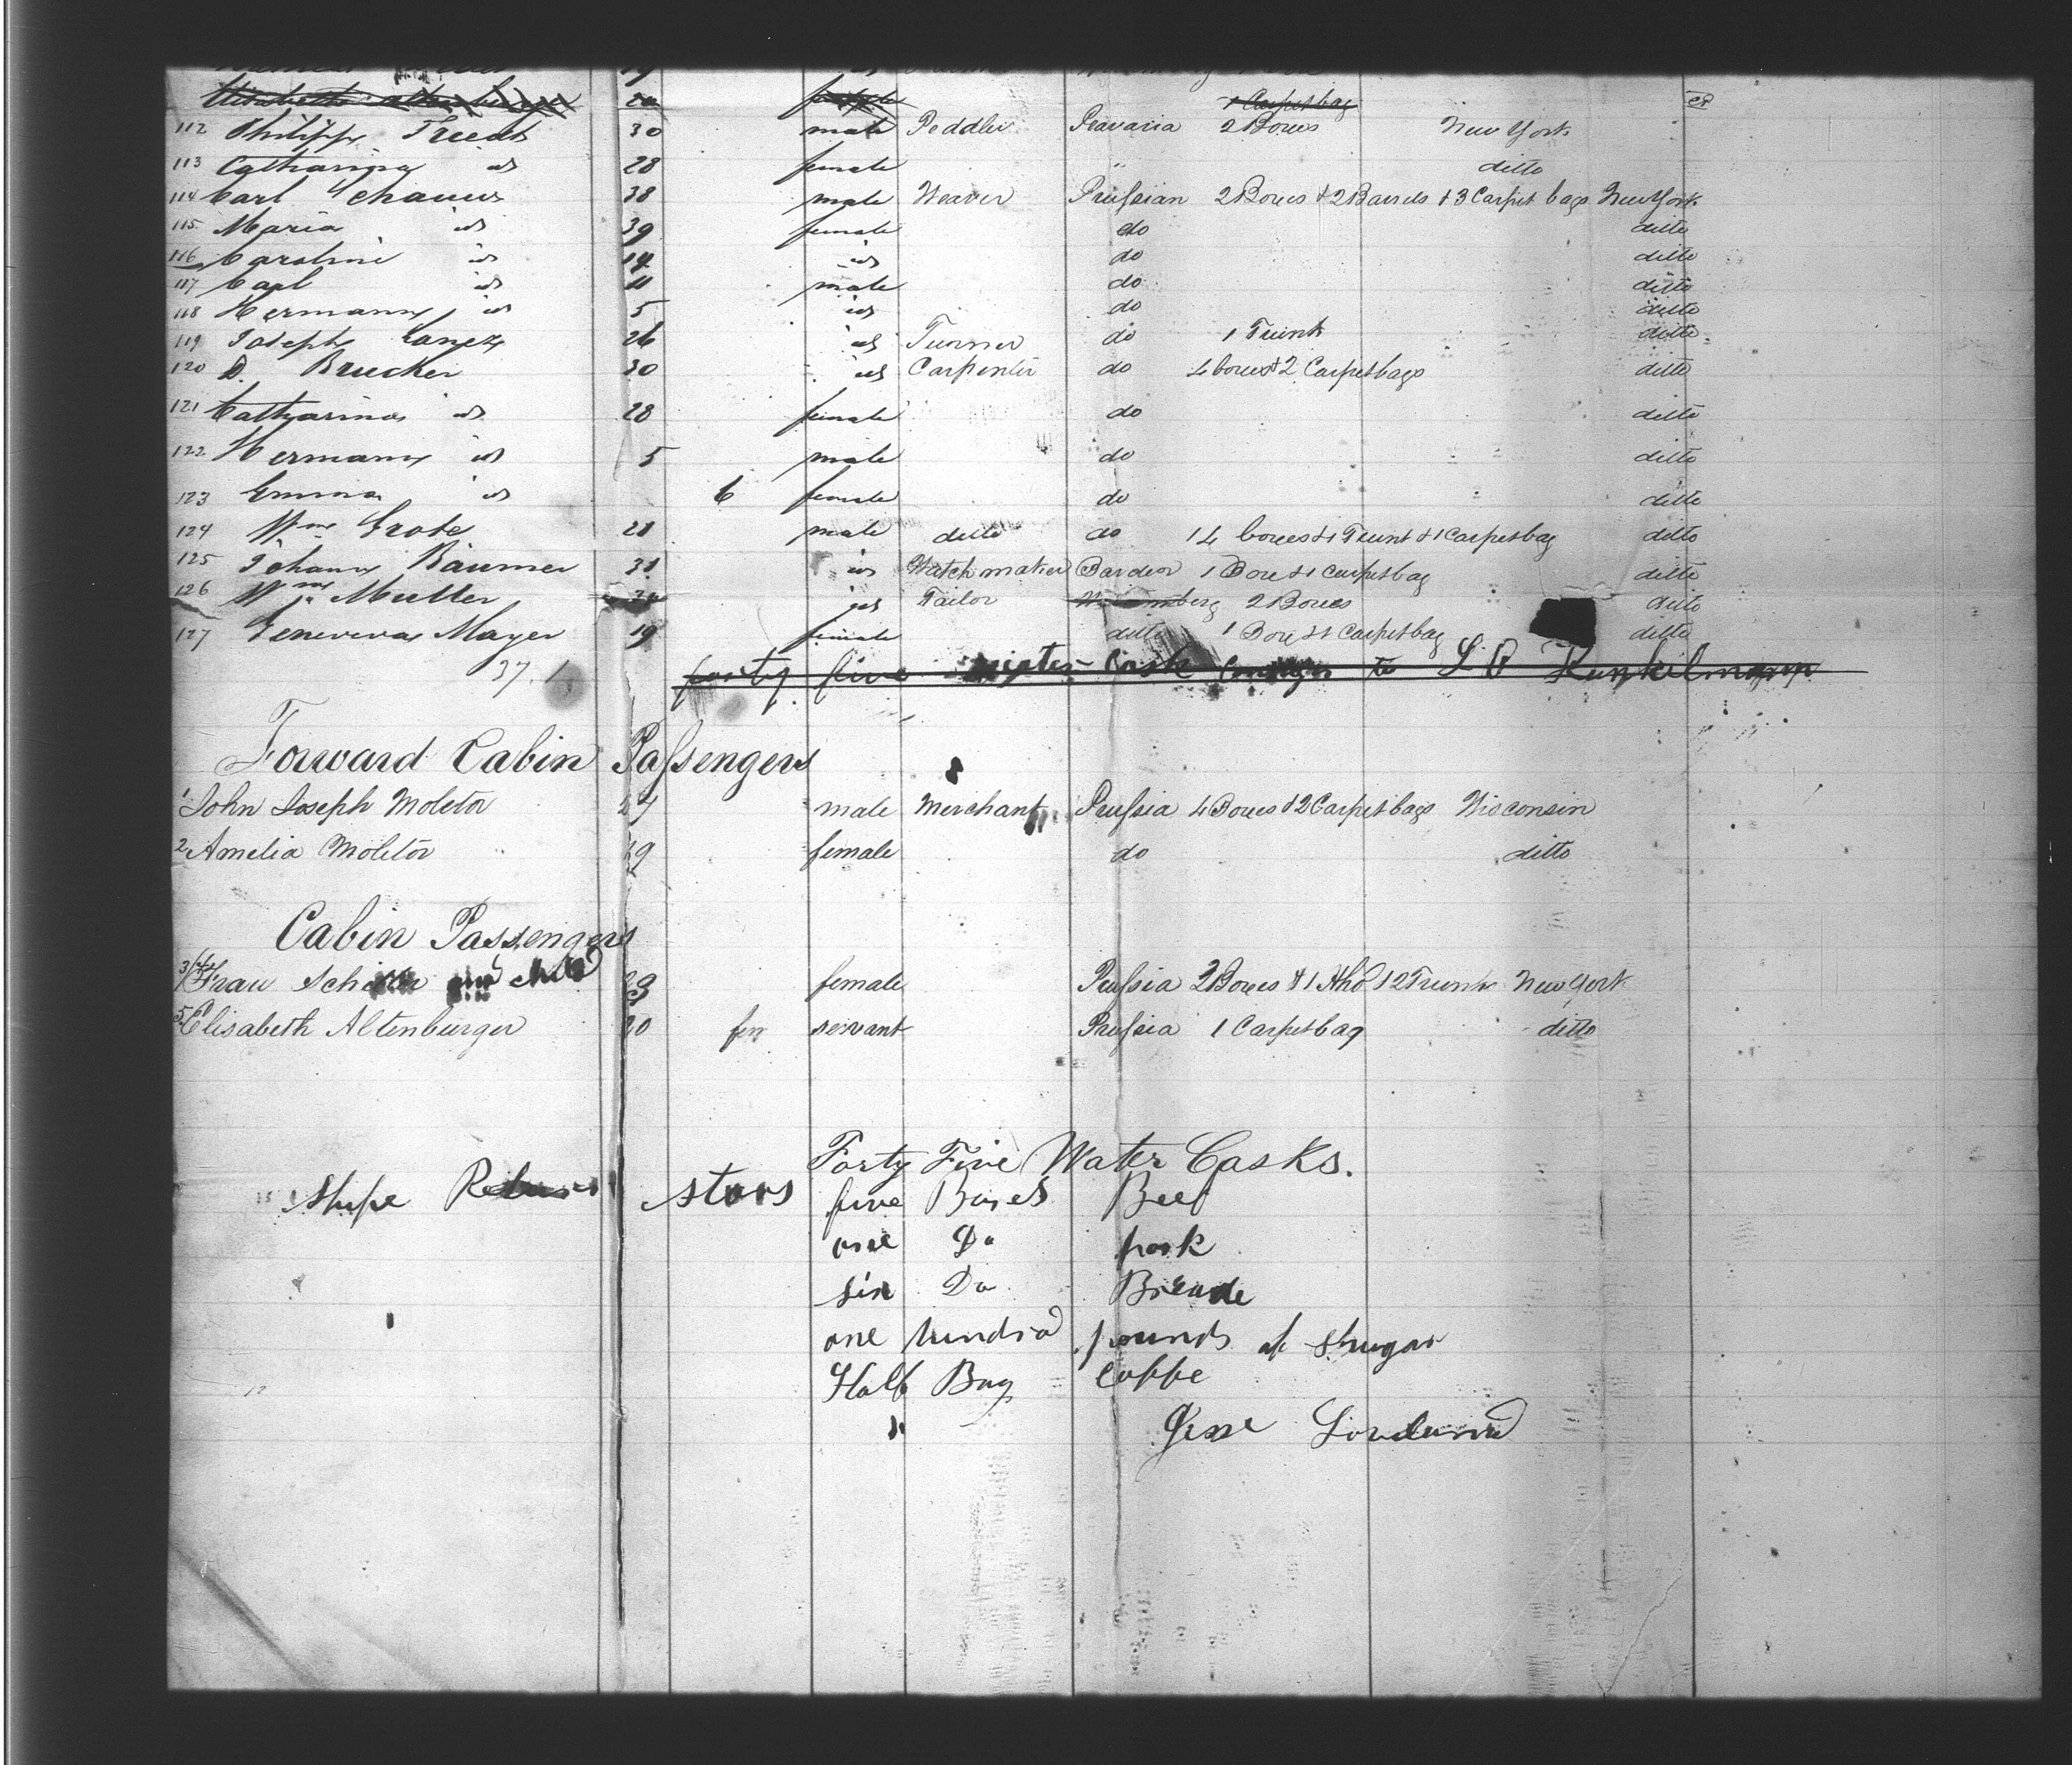 Elisabeth Altenburger 20 female 1 Carpetbag
112 Philipp 30 male Peddler Bavaria 2 Boxes New York
113 Catharina id 28 female " ditto
114 Carl Schauus 38 male Weaver Prussian 2 Boxes & 2 Barrels & 3 Carpet bags New York
115 Maria id 39 female do ditto
116 Caroline id 14 id do ditto
117 Carl id 11 male do ditto
118 Hermann id 5 id do ditto
119 Joseph 26 id Turner do 1 Trunk ditto
120 D. Bruecker 30 id Carpenter do 4 boxes & 2 Carpetbags ditto
121 Catharina id 28 female do ditto
122 Hermann id 5 male do ditto
123 Emma id 6 female do ditto
124 Wm Grote 28 male ditto do 14 boxes & 1 Trunk & 1 Carpetbag ditto
125 Johann Bäumer 31 id Watchmaker 1 Box & 1 Carpetbag ditto
126 Wm Muller id Tailor 2 Boxes ditto
127 Geneveva Mayer 19 female ditto 1 Box & 1 Carpetbag ditto
37.1
forty five water Cask to L Kunkelmann
Forward Cabin Passengers
1 John Joseph Moletor 27 male Merchant Prussia 4 Boxes & 2 Carpetbags Wisconsin
2 Amelia Moletor 29 female do ditto
Cabin Passengers
3/4 Frau and child 23 female Prussia 3 Boxes & 1 Hhd 12 Trunk New York
5 Elisabeth Altenburger 20 fem servant Prussia 1 Carpetbag ditto
Forty Five Water Casks.
Ships stors five Barrels Beef
one Do pork
six Do Breade
one hundred pounds of Shugar
Half Bag Coffe